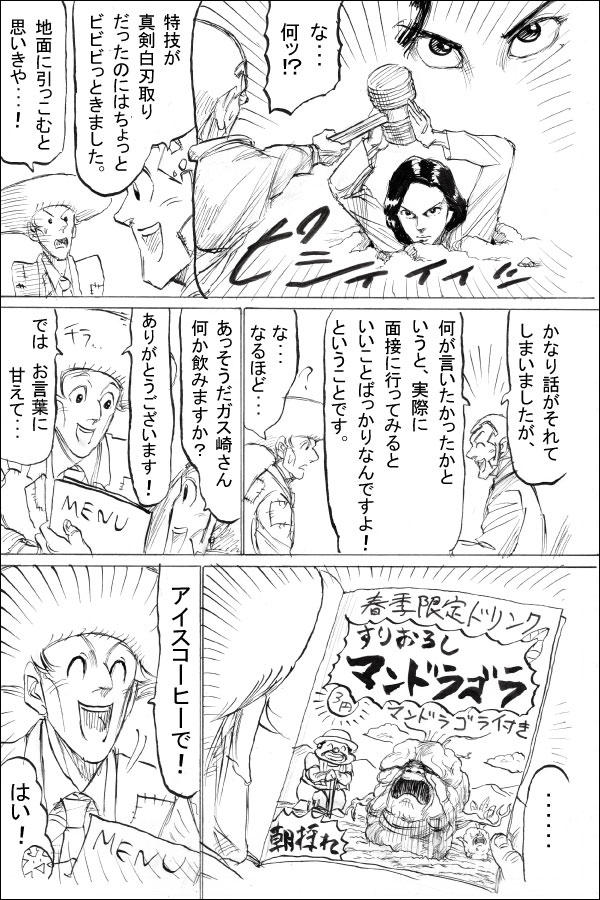 な・・・
何ッ!?
特技が
真剣白刃取り
だったのにはちょっと
ビビビっときました。
地面に引っこむと
思いきや・・・!
ピシィイィッ
かなり話がそれて
しまいましたが、
何が言いたかったかと
いうと、実際に
面接に行ってみると
いいことばっかりなんですよ!
ということです。
な・・・
なるほど・・・
あっそうだガス崎さん
何か飲みますか?
ありがとうございます!
では お言葉に
甘えて・・・
チラ・・
MENU
春季限定ドリンク
すりおろし
マンドラゴラ
マンドラゴライ付き
朝採れ
・・・・・・
アイスコーヒーで!
はい!
MENU